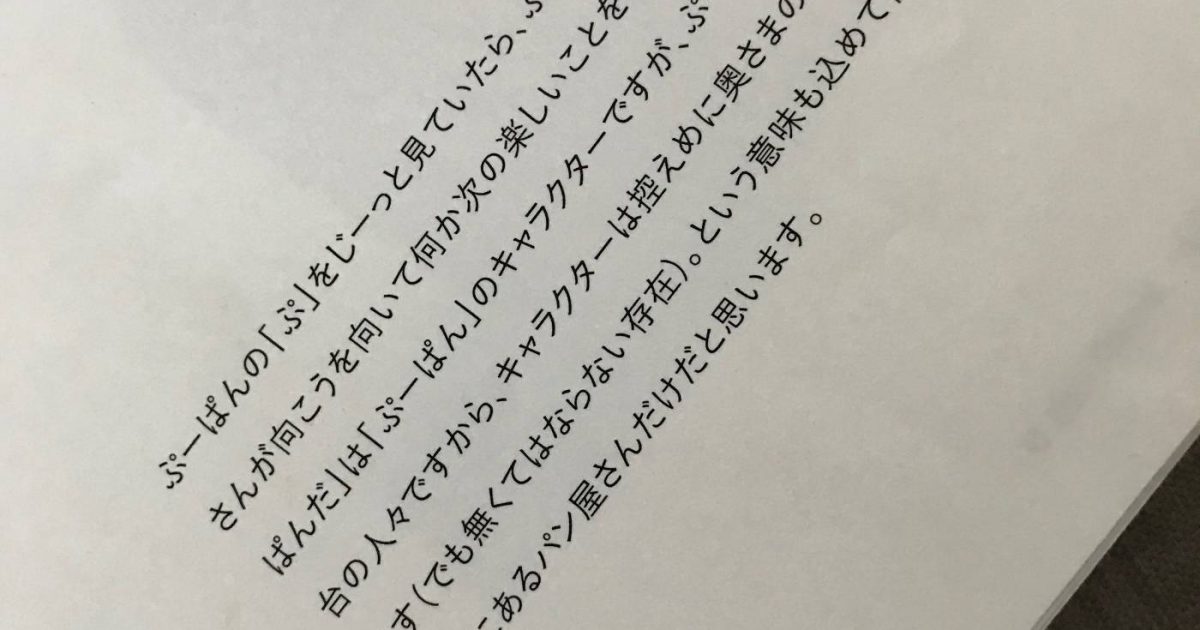 ぷーぱんの「ぷ」をじーっと見ていたら、ぷ
さんが向こうを向いて何か次の楽しいことを
ぱんだ」は「ぷーぱん」のキャラクターですが、ぷ
台の人々ですから、キャラクターは控えめに奥さまの
す(でも無くてはならない存在)。という意味も込めて
あるパン屋さんだけだと思います。